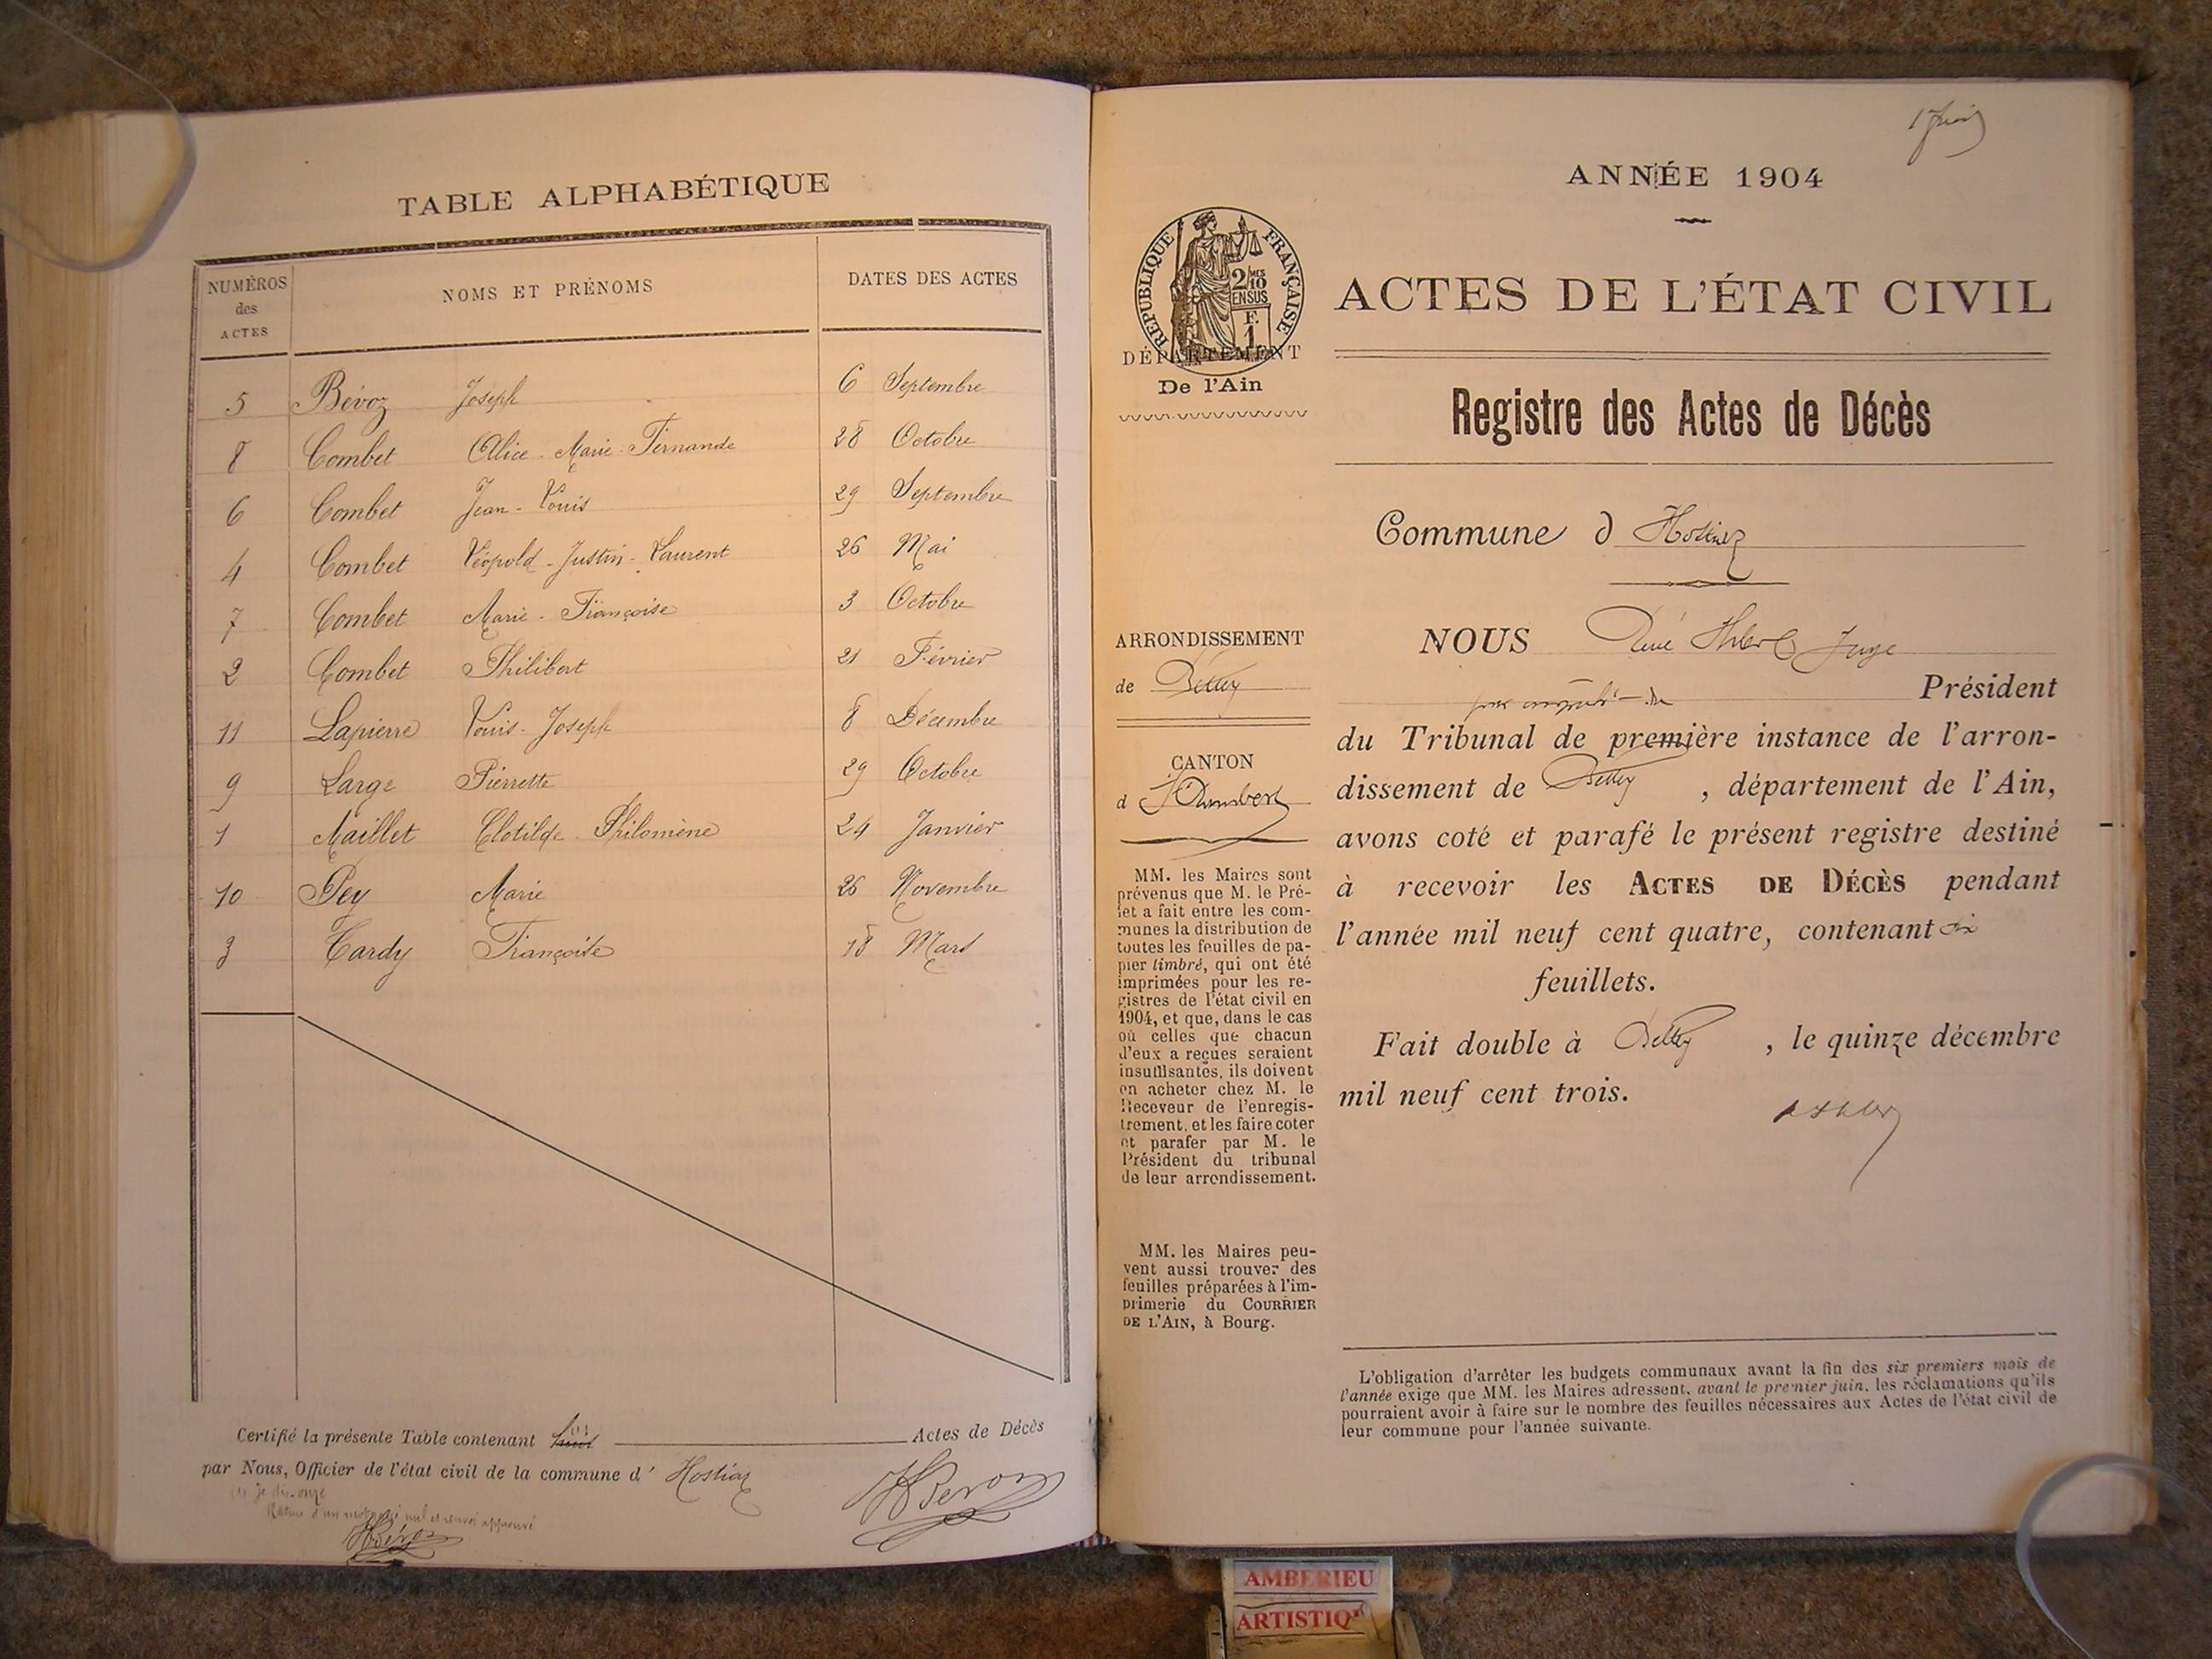 TABLE ALPHABÉTIQUE
NUMÉROS des ACTES
NOMS ET PRÉNOMS
DATES DES ACTES
5 Bévoz Joseph 6 Septembre
8 Combet Alice - Marie - Fernande 28 Octobre
6 Combet Jean - Louis 29 Septembre
4 Combet Léopold - Justin - Laurent 26 Mai
7 Combet Marie - Françoise 3 Octobre
2 Combet Philibert 21 Février
11 Lapierre Louis - Joseph 8 Décembre
9 Large Pierrette 29 Octobre
1 Maillet Clotilde Philomène 24 Janvier
10 Pey Marie 26 Novembre
3 Tardy Françoise 18 Mars
Certifié la présente Table contenant huit (1) Actes de Décès
par Nous, Officier de l'état civil de la commune d' Hostiaz
(1) Je dis onze
Rature d'un mot nul et renvoi approuvé
HBévoz
HBevoz
ANNÉE 1904
RÉPUBLIQUE FRANÇAISE
2/10MES
EN SUS
F.
1
DÉPARTEMENT
De l'Ain
ACTES DE L'ÉTAT CIVIL
Registre des Actes de Décès
Commune d Hostiaz
ARRONDISSEMENT
de Belley
CANTON
d
MM. les Maires sont
prévenus que M. le Pré-
fet a fait entre les com-
munes la distribution de
toutes les feuilles de pa-
pier timbré, qui ont été
imprimées pour les re-
gistres de l'état civil en
1904, et que, dans le cas
où celles que chacun
d'eux a reçues seraient
insuffisantes, ils doivent
en acheter chez M. le
Receveur de l'enregis-
trement, et les faire coter
et parafer par M. le
Président du tribunal
de leur arrondissement.
MM. les Maires peu-
vent aussi trouver des
feuilles préparées à l'im-
primerie du COURRIER
DE L'AIN, à Bourg.
NOUS Juge
Président
du Tribunal de première instance de l'arron-
dissement de Belley, département de l'Ain,
avons coté et parafé le présent registre destiné
à recevoir les ACTES DE DÉCÈS pendant
l'année mil neuf cent quatre, contenant
feuillets.
Fait double à Belley, le quinze décembre
mil neuf cent trois.
L'obligation d'arrêter les budgets communaux avant la fin des six premiers mois de
l'année exige que MM. les Maires adressent, avant le premier juin, les réclamations qu'ils
pourraient avoir à faire sur le nombre des feuilles nécessaires aux Actes de l'état civil de
leur commune pour l'année suivante.
AMBERIEU
ARTISTIQ